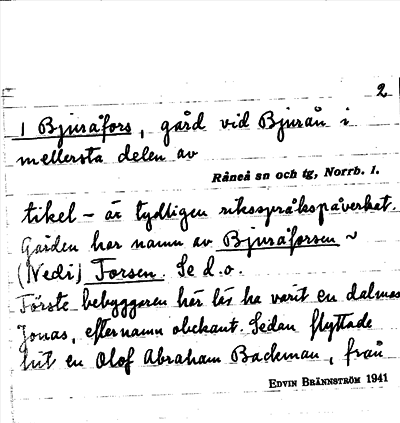 2
1 Bjuråfors, gård vid Bjurån i
mellersta delen av
Råneå sn och tg, Norrb. l.
tikel – är tydligen riksspråkspåverkat.
Gården har namn av Bjuråforsen ~
(Nedi) Forsen. Se d.o.
Förste bebyggaren här lär ha varit en dalmas
Jonas, efternamn obekant. Sedan flyttade
hit en Olof Abraham Backman, från
EDVIN BRÄNNSTRÖM 1941